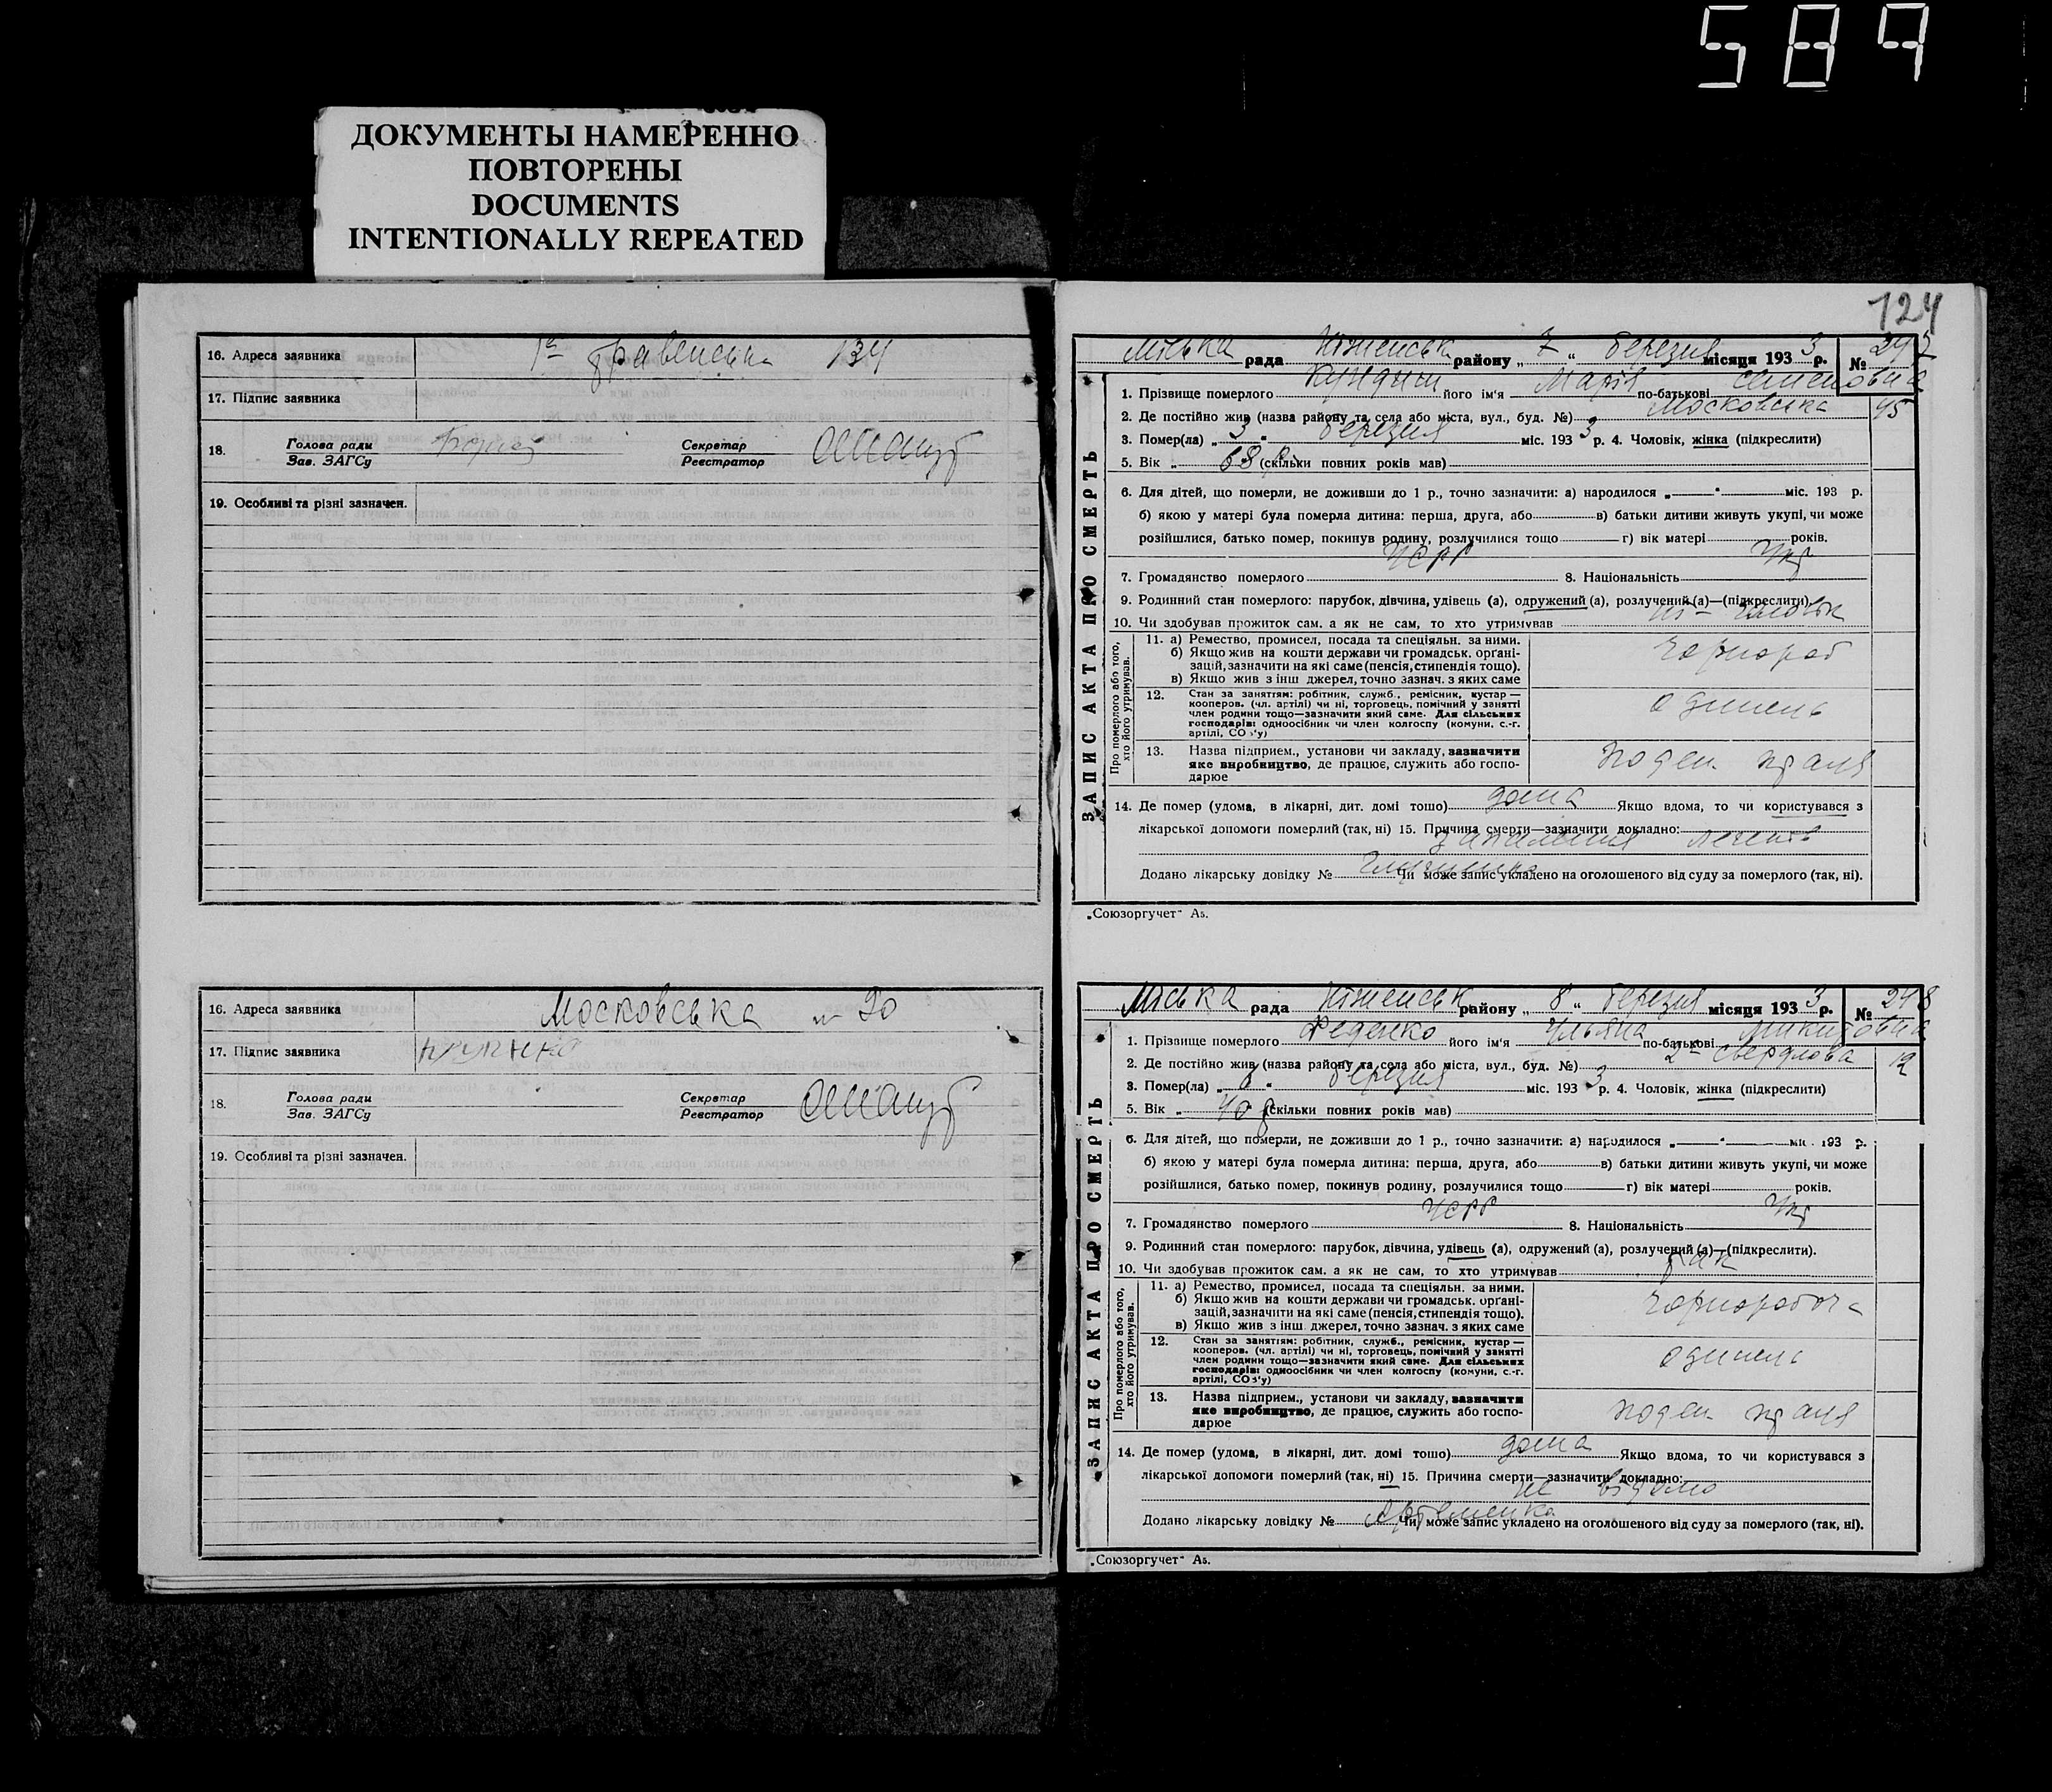 589
ДОКУМЕНТЫ НАМЕРЕННО
ПОВТОРЕНЫ
DOCUMENTS
INTENTIONALLY REPEATED
16. Адреса заявника 134
17. Підпис заявника
18. Голова ради
Зав. ЗАГСу
Секретар
Реєстратор
19. Особливі та різні зазначен.
16. Адреса заявника Московська № 90
17. Підпис заявника
18. Голова ради
Зав. ЗАГСу
Секретар
Реєстратор
19. Особливі та різні зазначен.
124
ЗАПИС АКТА ПРО СМЕРТЬ
Міська рада Ніженськ району „ 7 “ березня місяця 193 3 р. № 247
1. Прізвище померлого його ім'я Марія по-батькові Семеновна
2. Де постійно жив (назва району та села або міста, вул., буд. №) Московська 45
3. Помер(ла) „ 3 “ березня міс. 193 3 р. 4. Чоловік, жінка (підкреслити)
5. Вік „ 68 р (скільки повних років мав)
6. Для дітей, що померли, не доживши до 1 р., точно зазначити: а) народилося „ “ міс. 193 р.
б) якою у матері була померла дитина: перша, друга, або в) батьки дитини живуть укупі, чи може
розійшлися, батько помер, покинув родину, розлучилися тощо г) вік матері років.
7. Громадянство померлого УСРР 8. Національність Укр
9. Родинний стан померлого: парубок, дівчина, удівець (а), одружений (а), розлучений (а)—(підкреслити).
10. Чи здобував прожиток сам, а як не сам, то хто утримував ні – чоловік
Про померлого або того, хто його утримував.
11. а) Ремество, промисел, посада та спеціяльн. за ними.
б) Якщо жив на кошти держави чи громадськ. органі-
зацій, зазначити на які саме (пенсія, стипендія тощо).
в) Якщо жив з інш джерел, точно зазнач. з яких саме
чорнороб
12. Стан за заняттям: робітник, служб., ремісник, кустар —
кооперов. (чл. артілі) чи ні, торговець, помічний у занятті
член родини тощо—зазначити який саме. Для сільських
господарів: одноосібник чи член колгоспу (комуни, с.-г.
артілі, СОЗ'у)
одинець
13. Назва підприєм., установи чи закладу, зазначити
яке виробництво, де працює, служить або госпо-
дарює
поден. праця
14. Де помер (удома, в лікарні, дит. домі тощо) дома Якщо вдома, то чи користувався з
лікарської допомоги померлий (так, ні) 15. Причина смерти—зазначити докладно:
запалення легенів
Додано лікарську довідку № Чи може запис укладено на оголошеного від суду за померлого (так, ні).
„Союзоргучет“ А5.
ЗАПИС АКТА ПРО СМЕРТЬ
Міська рада Ніженськ району „ 8 “ березня місяця 193 3 р. № 248
1. Прізвище померлого Феденко його ім'я Ульяна по-батькові Микитовна
2. Де постійно жив (назва району та села або міста, вул., буд. №) 2а Свердлова 12
3. Помер(ла) „ 6 “ березня міс. 193 3 р. 4. Чоловік, жінка (підкреслити)
5. Вік „ 40 р (скільки повних років мав)
6. Для дітей, що померли, не доживши до 1 р., точно зазначити: а) народилося „ “ міс. 193 р.
б) якою у матері була померла дитина: перша, друга, або в) батьки дитини живуть укупі, чи може
розійшлися, батько помер, покинув родину, розлучилися тощо г) вік матері років.
7. Громадянство померлого УСРР 8. Національність Укр
9. Родинний стан померлого: парубок, дівчина, удівець (а), одружений (а), розлучений (а)—(підкреслити).
10. Чи здобував прожиток сам, а як не сам, то хто утримував так
Про померлого або того, хто його утримував.
11. а) Ремество, промисел, посада та спеціяльн. за ними.
б) Якщо жив на кошти держави чи громадськ. органі-
зацій, зазначити на які саме (пенсія, стипендія тощо).
в) Якщо жив з інш джерел, точно зазнач. з яких саме
чорноробоча
12. Стан за заняттям: робітник, служб., ремісник, кустар —
кооперов. (чл. артілі) чи ні, торговець, помічний у занятті
член родини тощо—зазначити який саме. Для сільських
господарів: одноосібник чи член колгоспу (комуни, с.-г.
артілі, СОЗ'у)
одинець
13. Назва підприєм., установи чи закладу, зазначити
яке виробництво, де працює, служить або госпо-
дарює
поден. праця
14. Де помер (удома, в лікарні, дит. домі тощо) дома Якщо вдома, то чи користувався з
лікарської допомоги померлий (так, ні) 15. Причина смерти—зазначити докладно:
не відомо
Додано лікарську довідку № Артеменка Чи може запис укладено на оголошеного від суду за померлого (так, ні).
„Союзоргучет“ А5.